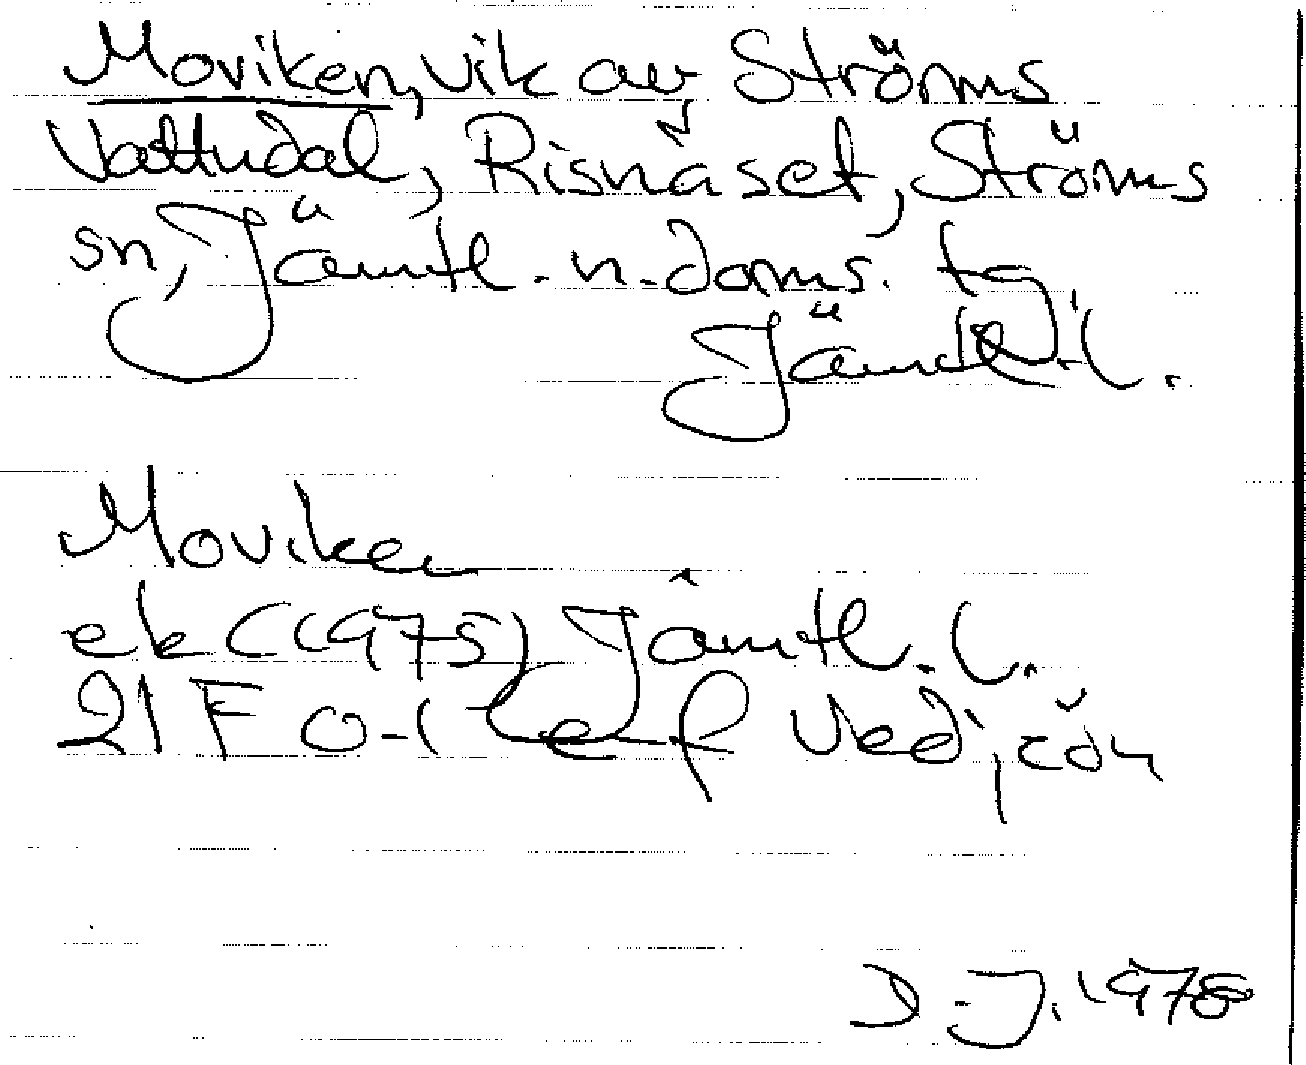 Moviken, vik av Ströms
Vattudal, Risnäset, Ströms
sn, Jämtl. n. doms. tg,
Jämtl. l.
Moviken
ek (1975) Jämtl. l.
21 F 0-1
D.J. 1978